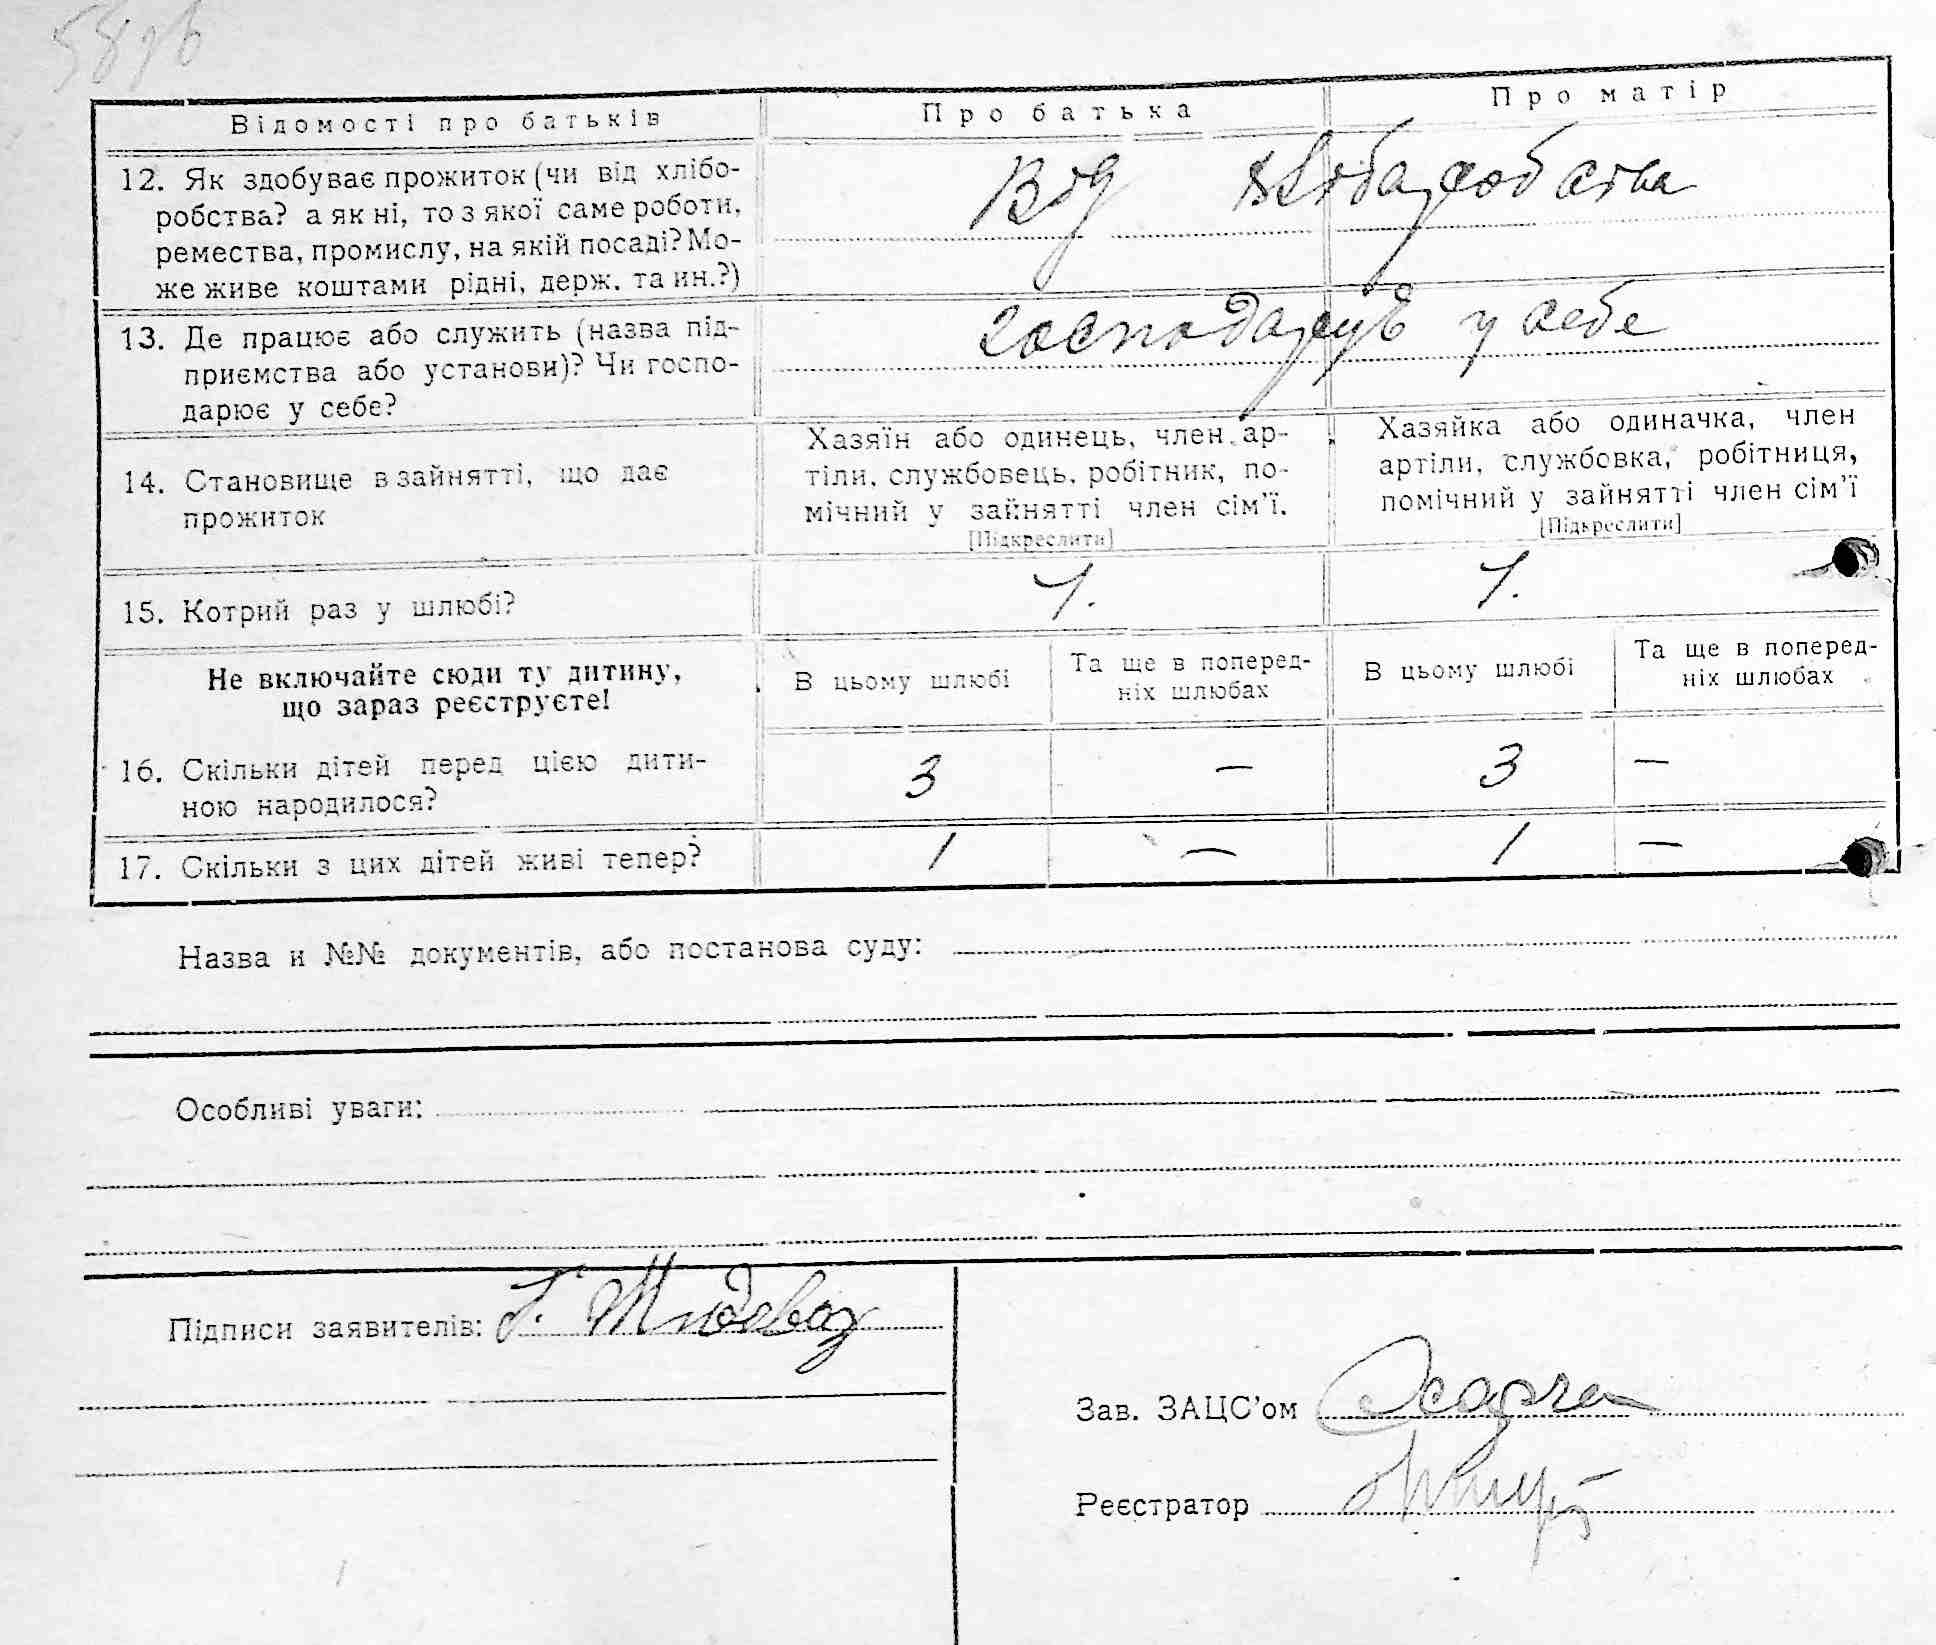 58зв
Відомості про батьків
Про батька
Про матір
12. Як здобуває прожиток (чи від хлібо-
робства? а як ні, то з якої саме роботи,
ремества, промислу, на якій посаді? Мо-
же живе коштами рідні, держ. та ин.?)
Від хлібаробства
13. Де працює або служить (назва під-
приємства або установи)? Чи госпо-
дарює у себе?
господарує у себе
14. Становище в зайнятті, що дає
прожиток
Хазяїн або одинець, член ар-
тіли, службовець, робітник, по-
мічний у зайнятті член сім'ї.
[Підкреслити]
Хазяйка або одиначка, член
артіли, службовка, робітниця,
помічний у зайнятті член сім'ї
[Підкреслити]
15. Котрий раз у шлюбі?
1.
1.
Не включайте сюди ту дитину,
що зараз реєструєте!
В цьому шлюбі
Та ще в поперед-
ніх шлюбах
В цьому шлюбі
Та ще в поперед-
ніх шлюбах
16. Скільки дітей перед цією дити-
ною народилося?
3
—
3
—
17. Скільки з цих дітей живі тепер?
1
—
1
—
Назва и №№ документів, або постанова суду:
Особливі уваги:
Підписи заявителів:
Зав. ЗАЦС'ом
Реєстратор